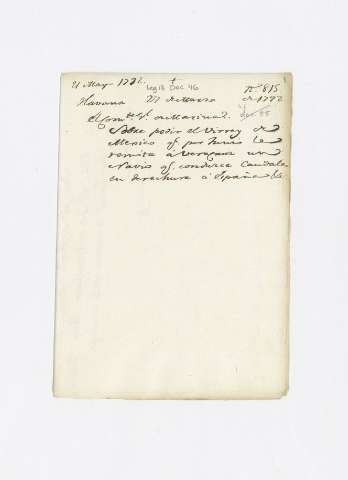 21 Mayo 1772. +
Leg 18 Doc 46 Nº 815
Havana 27 de Marzo de 1772
El Comte Gl de Marina
doc 55
Sobre pedir el Virrey de
Mexico qe por Junio le
remita a Veracruz un
Navio qe conduzca Caudales
en derechura á España